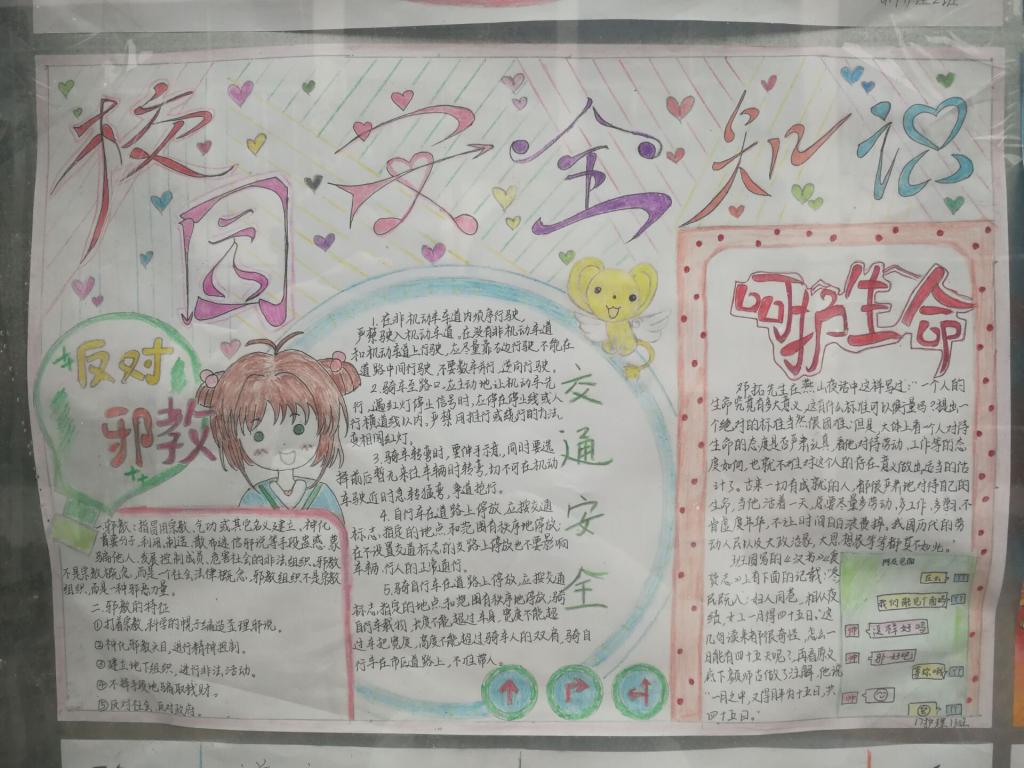 校园安全知识
反对
邪教
一.邪教:指冒用宗教、气功或其它名义建立,神化
首要分子,利用,制造,散布迷信邪说等手段蛊惑、蒙
骗他人,发展控制成员,危害社会的非法组织。邪教
不是宗教概念,而是一个社会法律概念,邪教组织不是宗教
组织,而是一种邪恶力量。
二.邪教的特征
①打着宗教,科学的幌子编造歪理邪说。
②神化邪教头目,进行精神控制。
③建立地下组织,进行非法活动。
④不择手段地骗取钱财。
⑤反对社会,反对政府。
1.在非机动车车道内顺序行驶,
严禁驶入机动车道。在没有非机动车道
和机动车道上行驶,应尽量靠右边行驶,不能在
道路中间行驶,不要数车并行,逆向行驶。
2.骑车至路口,应主动地让机动车先
行,遇红灯停止信号时,应停在停止线或人
行横道线以内。严禁用推行或绕行的方法
闯红灯。
3.骑车转弯时,要伸手示意,同时要选
择前后暂无来往车辆时转弯,切不可在机动
车驶近时急转猛弯,争道抢行。
4.自行车在道路上停放,应按交通
标志,指定的地点和范围有秩序地停放;
在不设置交通标志的支路上停放也不要影响
车辆、行人的正常通行。
5.骑自行车在道路上停放,应按交通
标志,指定的地点和范围有秩序地停放;骑
自行车载物,长度不能超过车身,宽度不能超
过车把宽度,高度不能超过骑车人的双肩,骑自
行车在市区道路上,不准带人。
交
通
安
全
呵护生命
邓拓先生在燕山夜话中这样写过:"一个人的
生命究竟有多大意义,这有什么标准可以衡量吗?提出一
个绝对的标准当然很困难;但是,大体上看一个人对待
生命的态度是否严肃认真,看他对待劳动,工作等的态
度如何,也就不难对这个人的存在意义做出适当的估
计了。古来一切有成就的人,都很严肃地对待自己的
生命,当他活着一天,总要尽量多劳动,多工作,多学习,不
肯虚度年华,不让时间白白浪费掉。我国历代的劳
动人民以及大政治家,大思想家等等都莫不如此。"
班固写的《汉书》食
货志》上有下面的记载:"冬
民既入;妇人同巷,相从夜
绩,女工一月得四十五日。"这
几句读来有很奇怪,怎么一
月能有四十五天呢?再看原文
底下颜师古做了注解,他说
"一月之中,又得夜半为十五日,共
四十五日。"
网友见面
在么
我们能见个面吗
这样好吗
那好吧
等你哦
17护理13班